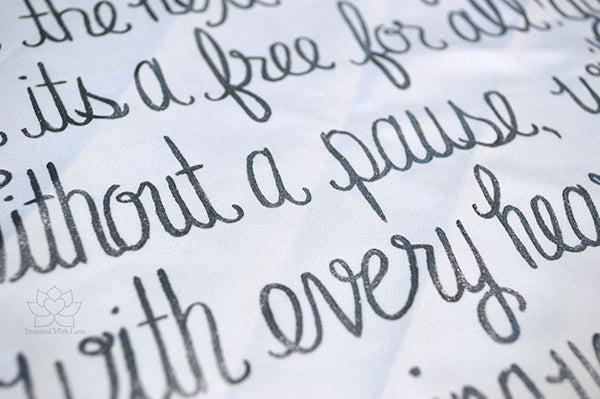 the
its a free for all.
without a pause,
with every hea
Inspired With Love